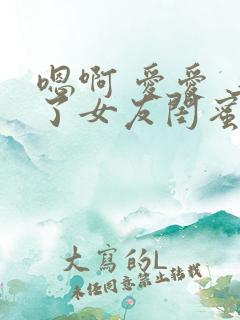 嗯啊 爱爱
了女友闺蜜
大写的L
未经同意禁止转载